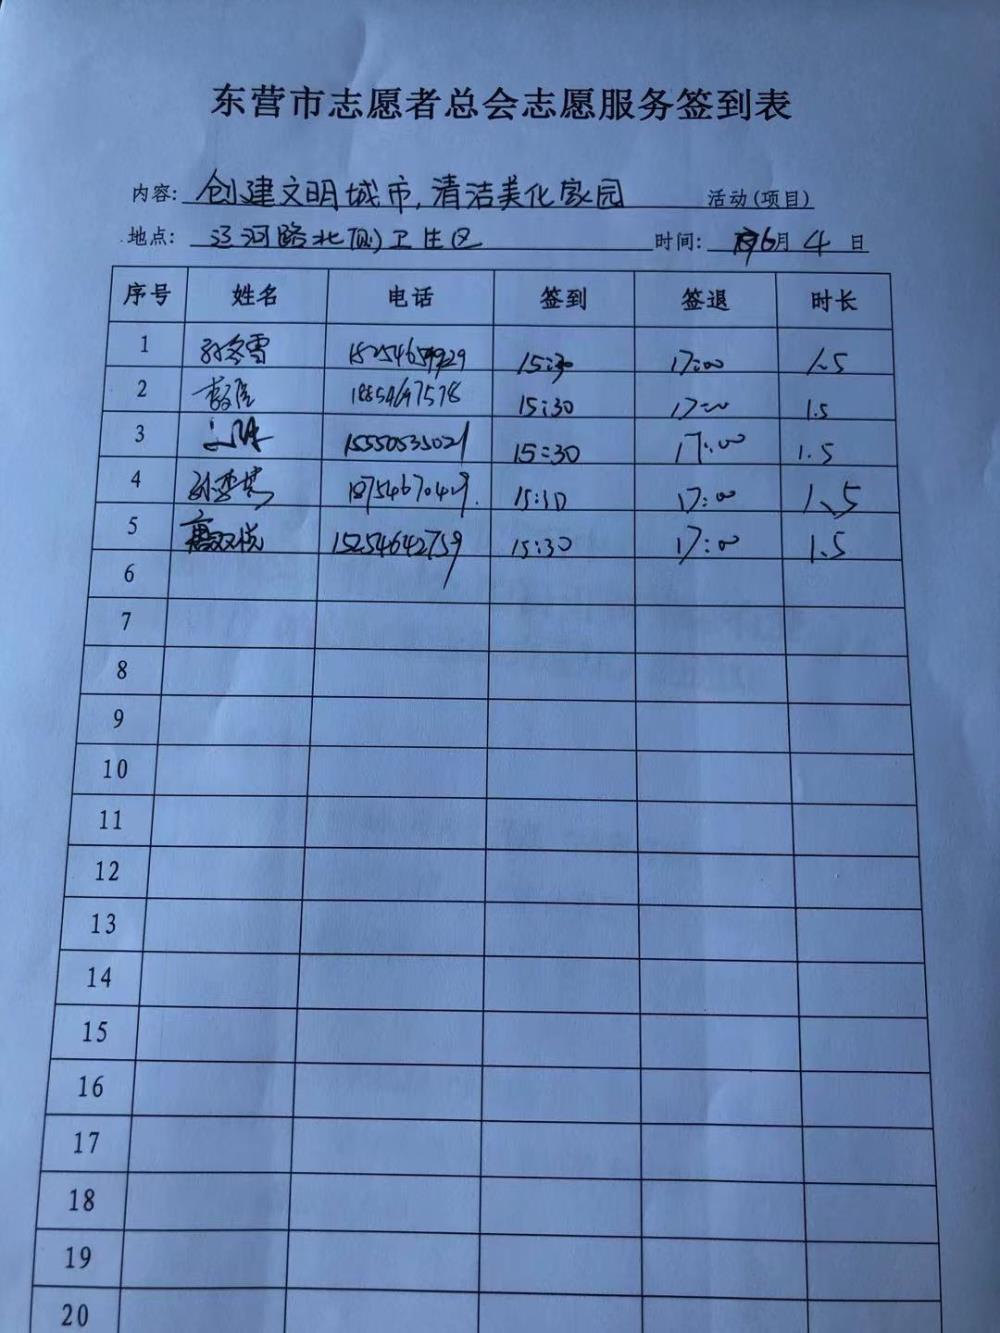 东营市志愿者总会志愿服务签到表
内容: 创建文明城市,清洁美化家园 活动(项目)
地点: 辽河路北侧卫生区 时间: 6月 4 日
序号 姓名 电话 签到 签退 时长
1 孙冬雪 15:30 17:00 1.5
2 15:30 17:00 1.5
3 15550535021 15:30 17:00 1.5
4 18754670429 15:30 17:00 1.5
5 15254642759 15:30 17:00 1.5
6
7
8
9
10
11
12
13
14
15
16
17
18
19
20